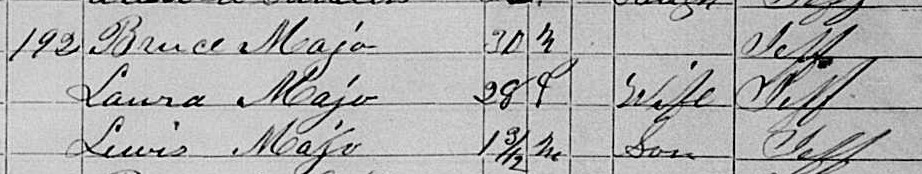 192 Bruce Majo 30 M Jeff
Laura Majo 28 F Wife Jeff
Lewis Majo 1 3/12 M Son Jeff